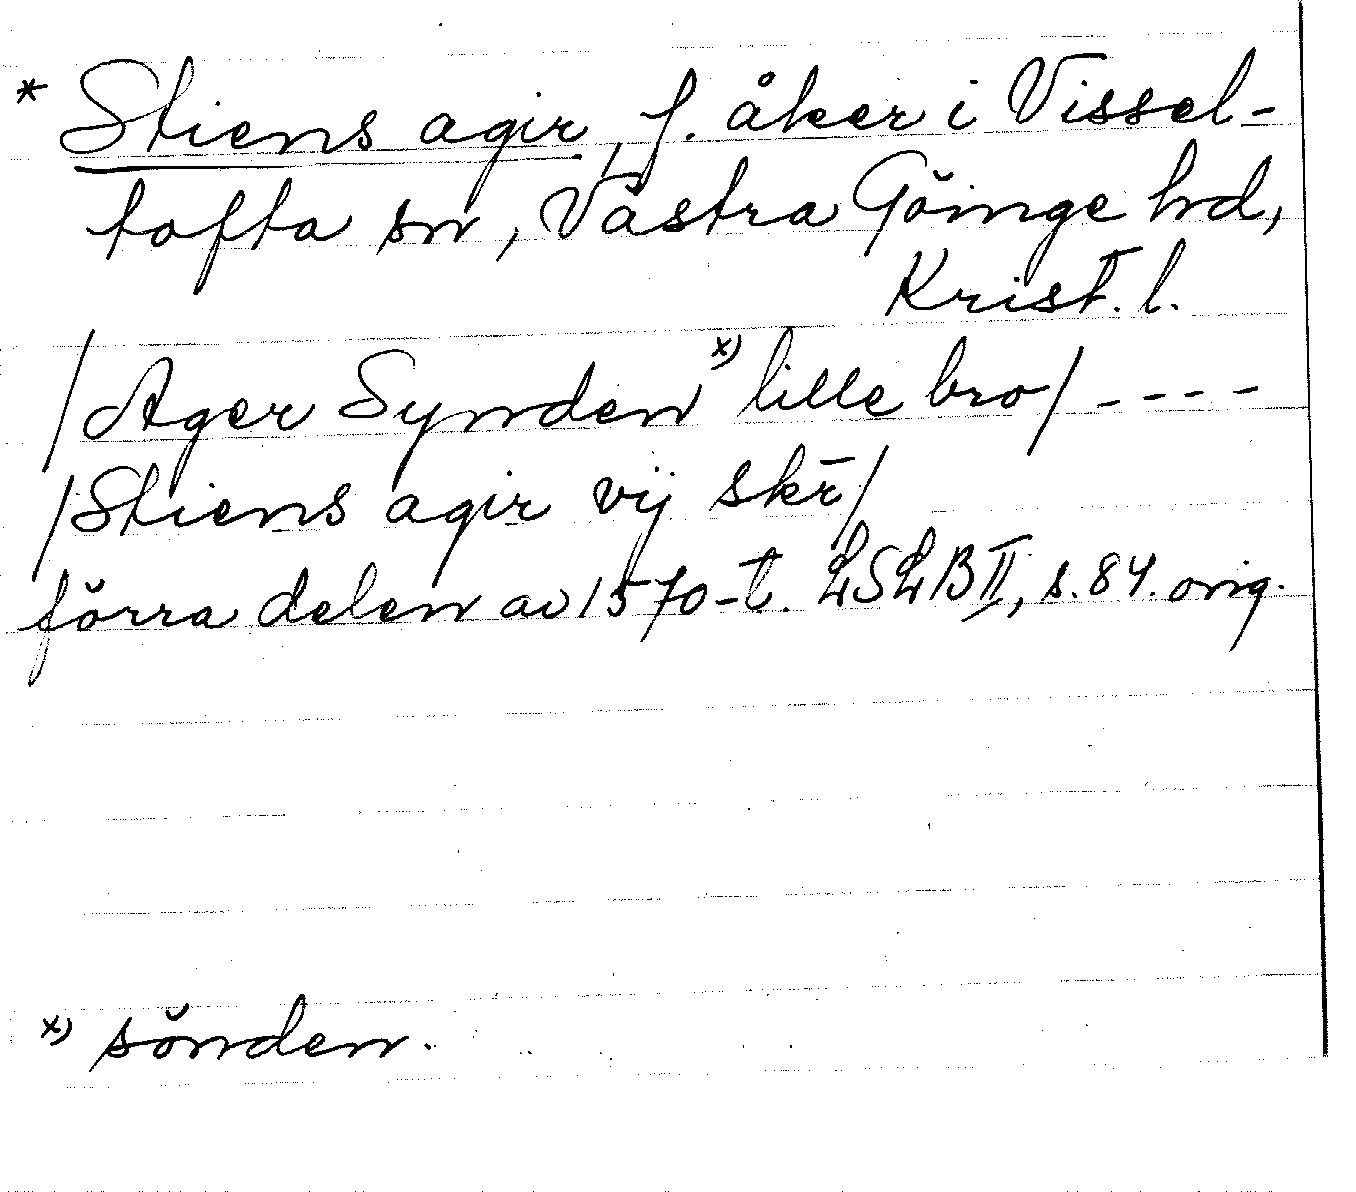 * Stiens agir, f. åker i Vissel-
tofta sn, Västra Göinge hd,
Krist. l.
/Ager Synden x) lille bro/ - - - -
/Stiens agir vij skr̄/
förra delen av 1570-t. LSLB II, s. 84. orig.
x) sönden.